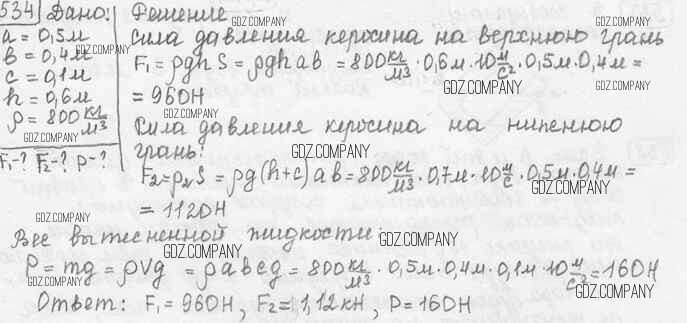 534 Дано: Решение
a = 0,5м Сила давления керосина на верхнюю грань
b = 0,4м GDZ.COMPANY
c = 0,1м F₁ = ρghS = ρghab = 800 кг/м³ · 0,6м · 10 м/с² · 0,5м · 0,4м =
h = 0,6м = 960Н
ρ = 800 кг/м³ Сила давления керосина на нижнюю
F₁-? F₂-? P-? грань:
F₂ = p₂S = ρg(h+c)ab = 800 кг/м³ · 0,7м · 10 м/с · 0,5м · 0,4м =
= 1120Н
Вес вытесненной жидкости:
P = mg = ρVg = ρabcg = 800 кг/м³ · 0,5м · 0,4м · 0,1м · 10 м/с² = 160Н
Ответ: F₁ = 960Н, F₂ = 1,12кН, P = 160Н
GDZ.COMPANY
GDZ.COMPANY
GDZ.COMPANY
GDZ.COMPANY
GDZ.COMPANY
GDZ.COMPANY
GDZ.COMPANY
GDZ.COMPANY
GDZ.COMPANY
GDZ.COMPANY
GDZ.COMPANY
GDZ.COMPANY
GDZ.COMPANY
GDZ.COMPANY